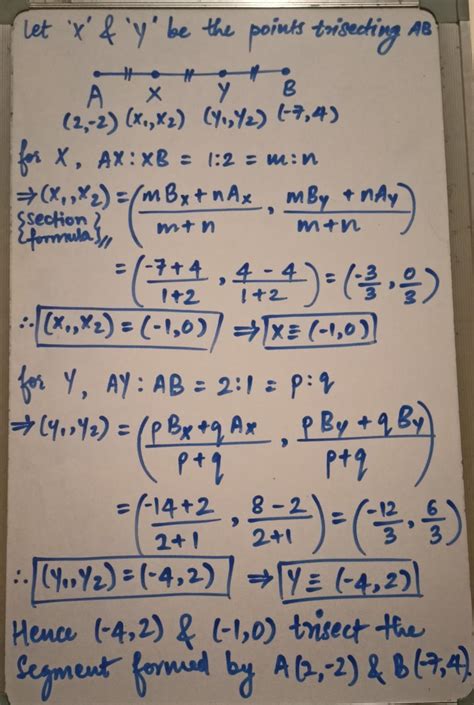 Let 'x' & 'y' be the points trisecting AB
A X Y B
(2,-2) (x₁,x₂) (y₁,y₂) (-7,4)
for X, AX:XB = 1:2 = m:n
⇒ (x₁,x₂) = ( (mBx+nAx)/(m+n) , (mBy+nAy)/(m+n) )
{section
formula}
= ( (-7+4)/(1+2) , (4-4)/(1+2) ) = ( -3/3 , 0/3 )
∴ (x₁,x₂) = (-1,0) ⇒ X ≡ (-1,0)
for Y, AY:AB = 2:1 = p:q
⇒ (y₁,y₂) = ( (pBx+qAx)/(p+q) , (pBy+qBy)/(p+q) )
= ( (-14+2)/(2+1) , (8-2)/(2+1) ) = ( -12/3 , 6/3 )
∴ (y₁,y₂) = (-4,2) ⇒ Y ≡ (-4,2)
Hence (-4,2) & (-1,0) trisect the
segment formed by A(2,-2) & B(-7,4).